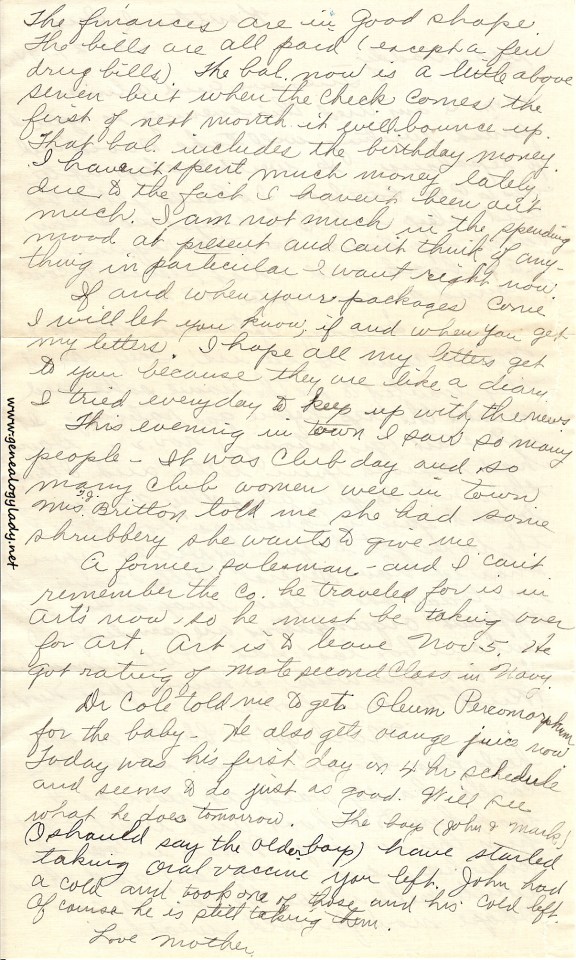 The finances are in good shape.
The bills are all paid (except a few
drug bills). The bal. now is a little above
seven but when the check comes the
first of next month it will bounce up.
That bal. includes the birthday money.
I haven't spent much money lately
due to the fact I haven't been out
much. I am not much in the spending
mood at present and can't think of any-
thing in particular I want right now.
If and when your packages come
I will let you know, if and when you get
my letters. I hope all my letters get
to you because they are like a diary.
I tried everyday to keep up with the news
This evening in town I saw so many
people - It was Club day and so
many club women were in town
Mrs. Britton told me she had some
shrubbery she wants to give me
A former salesman - and I can't
remember the Co. he traveled for is in
Art's now, so he must be taking over
for Art. Art is to leave Nov 5. He
got rating of mate second Class in Navy.
Dr Cole told me to get Oleum Percomorphum
for the baby - He also gets orange juice now
Today was his first day on 4 hr schedule
and seems to do just as good. Will see
what he does tomorrow. The boys (John & Mark)
(I should say the older boys) have started
taking oral vaccine you left. John had
a cold and took one of those and his cold left.
Of course he is still taking them.
Love mother.
www.genealogylady.net